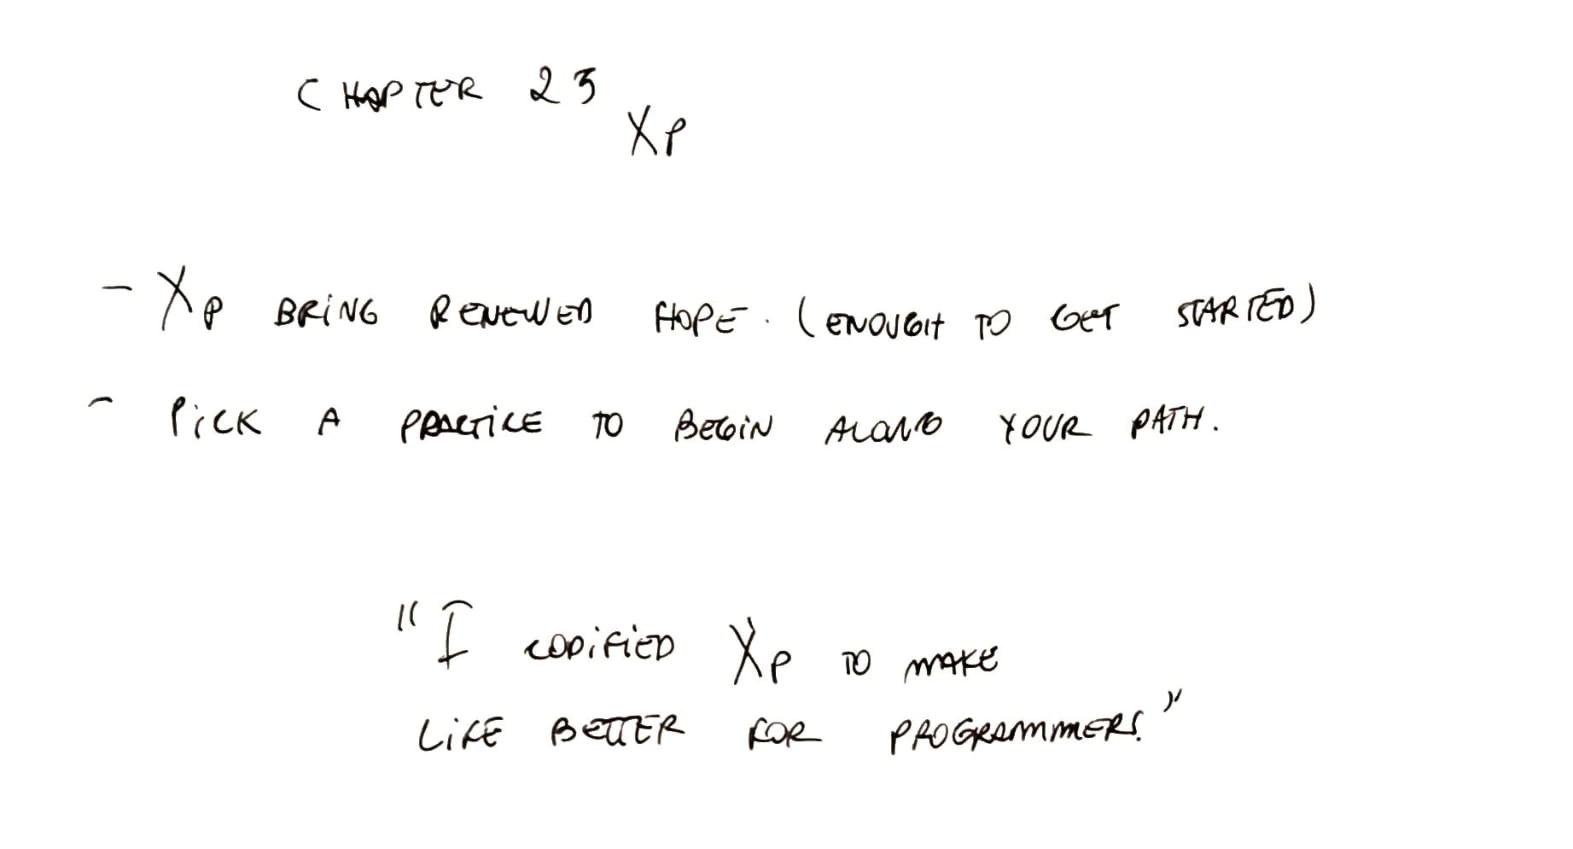 CHAPTER 23
XP
- XP BRING RENEWED HOPE. (ENOUGH TO GET STARTED)
- PICK A PRACTICE TO BEGIN ALONG YOUR PATH.
"I CODIFIED XP TO MAKE
LIFE BETTER FOR PROGRAMMERS."